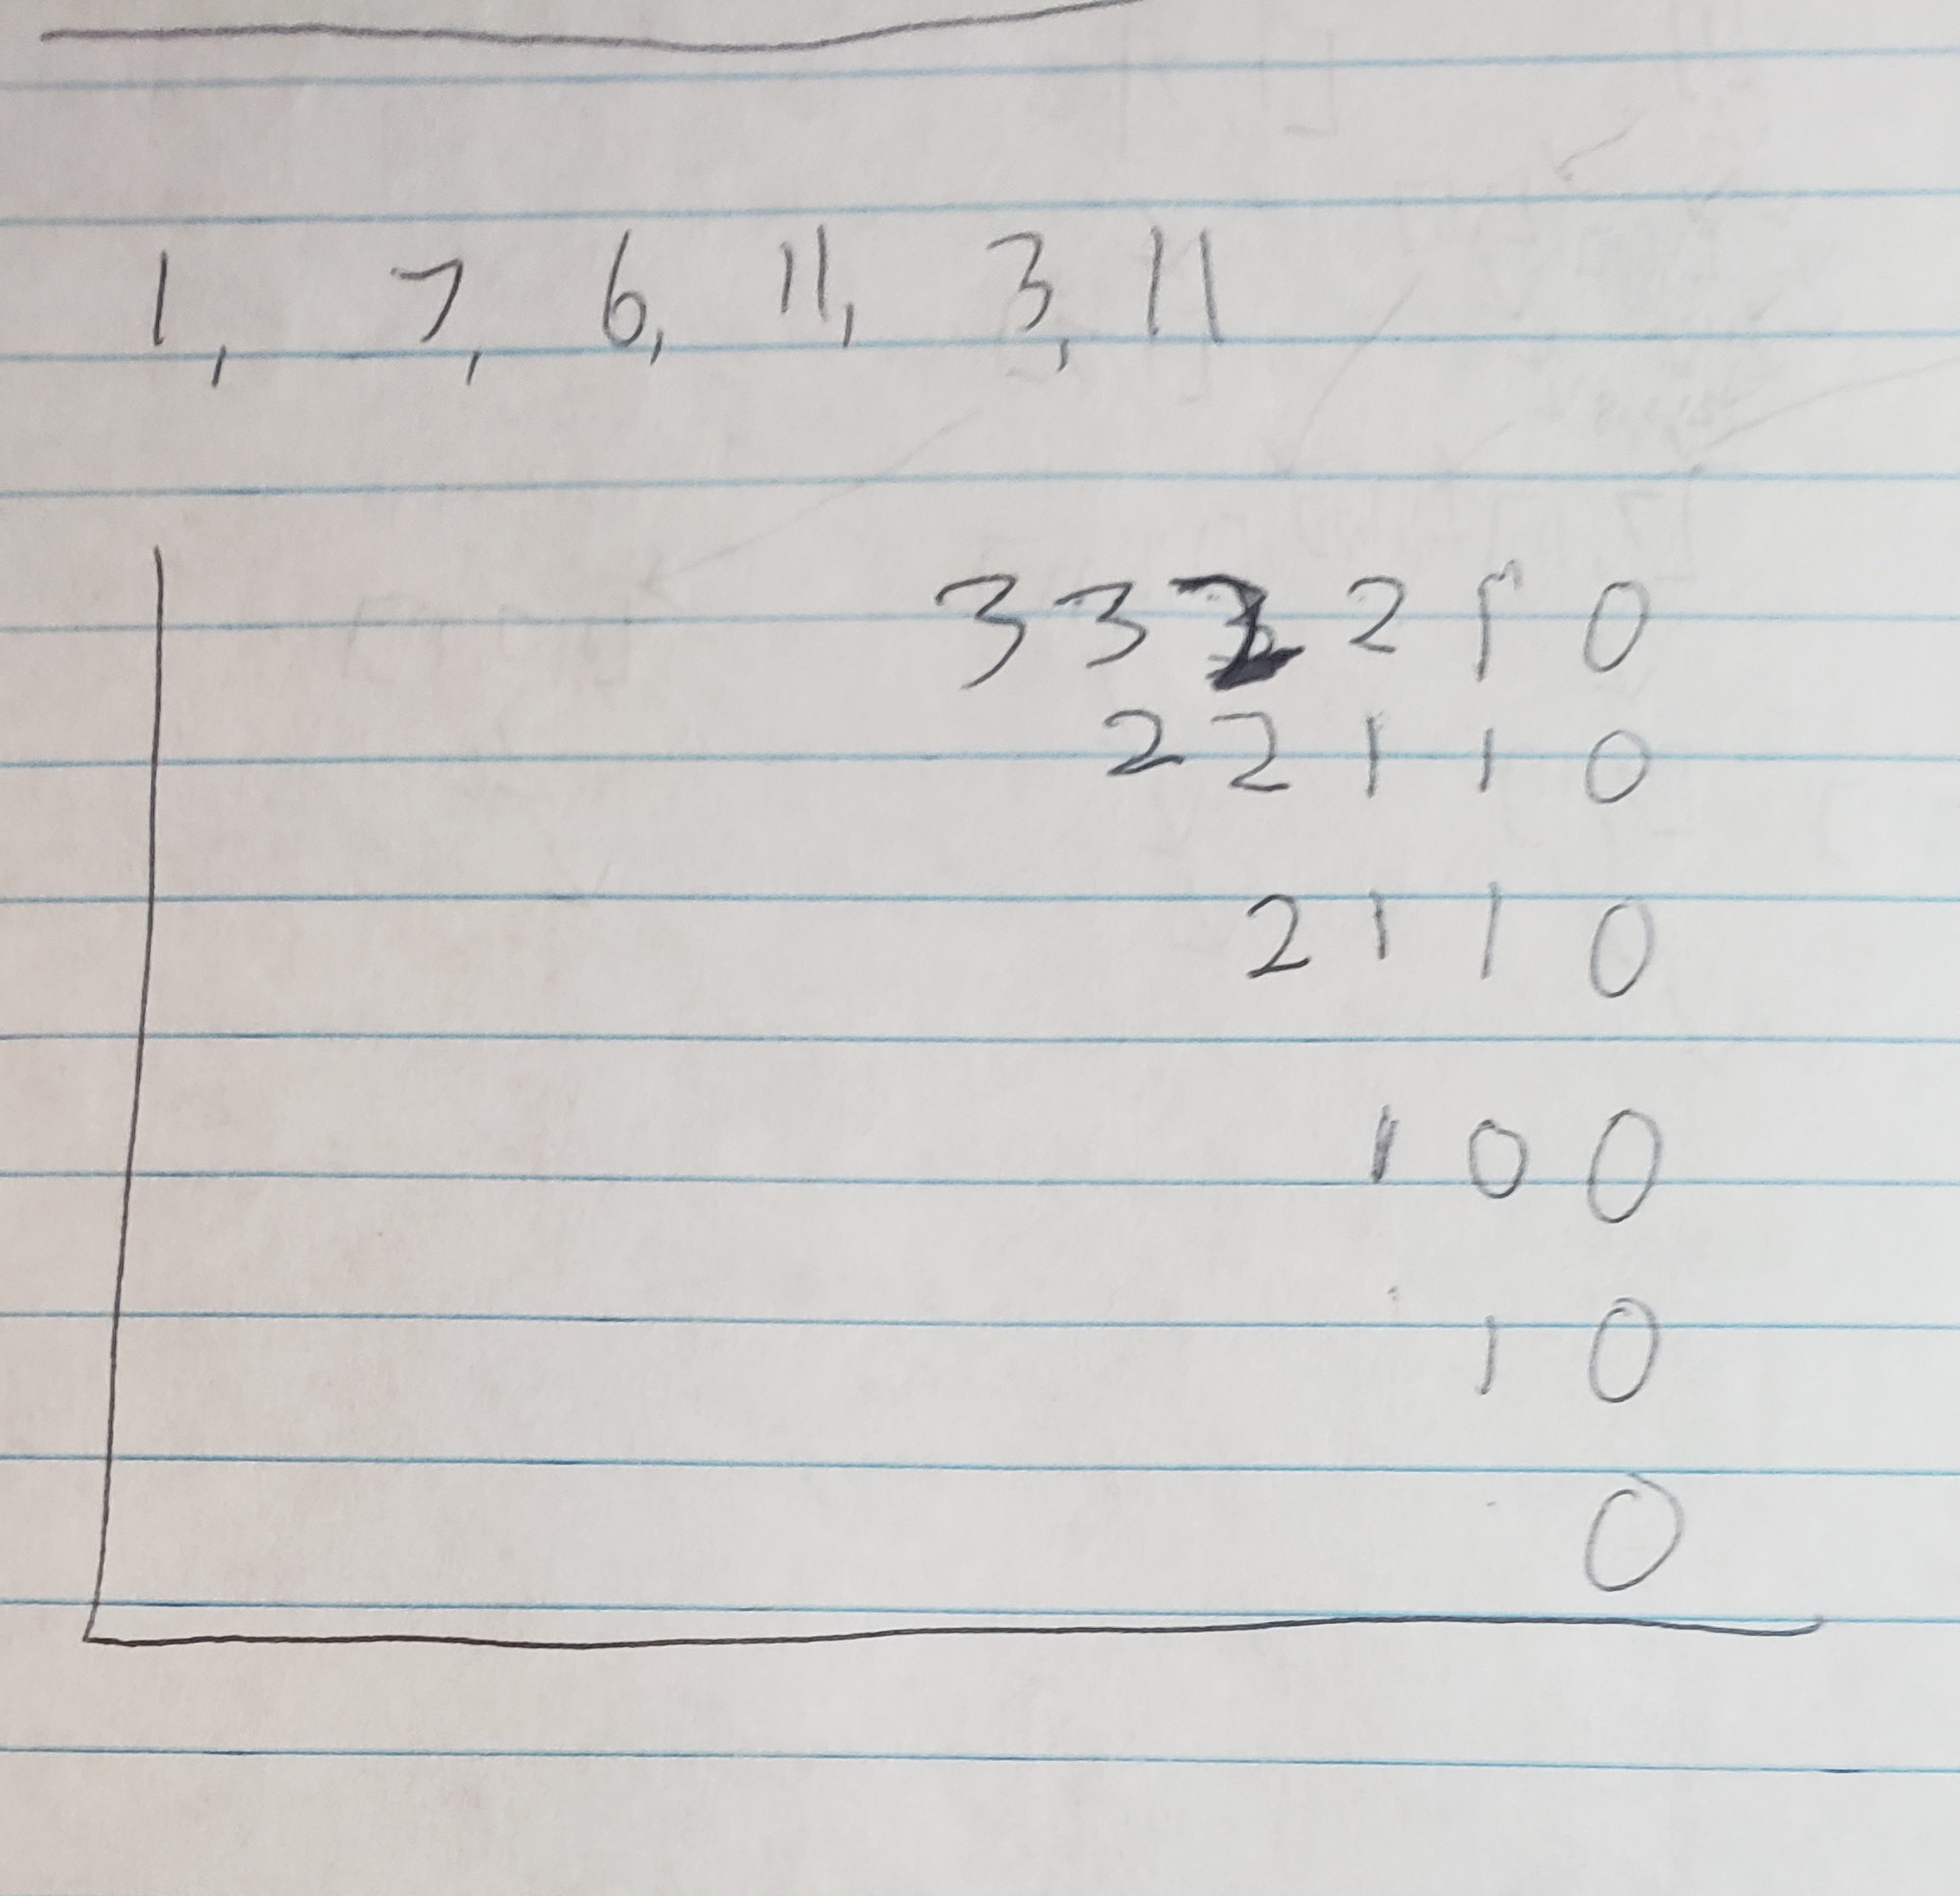 1, 7, 6, 11, 3, 11
3 3 2 2 1 0
2 2 1 1 0
2 1 1 0
1 0 0
1 0
0